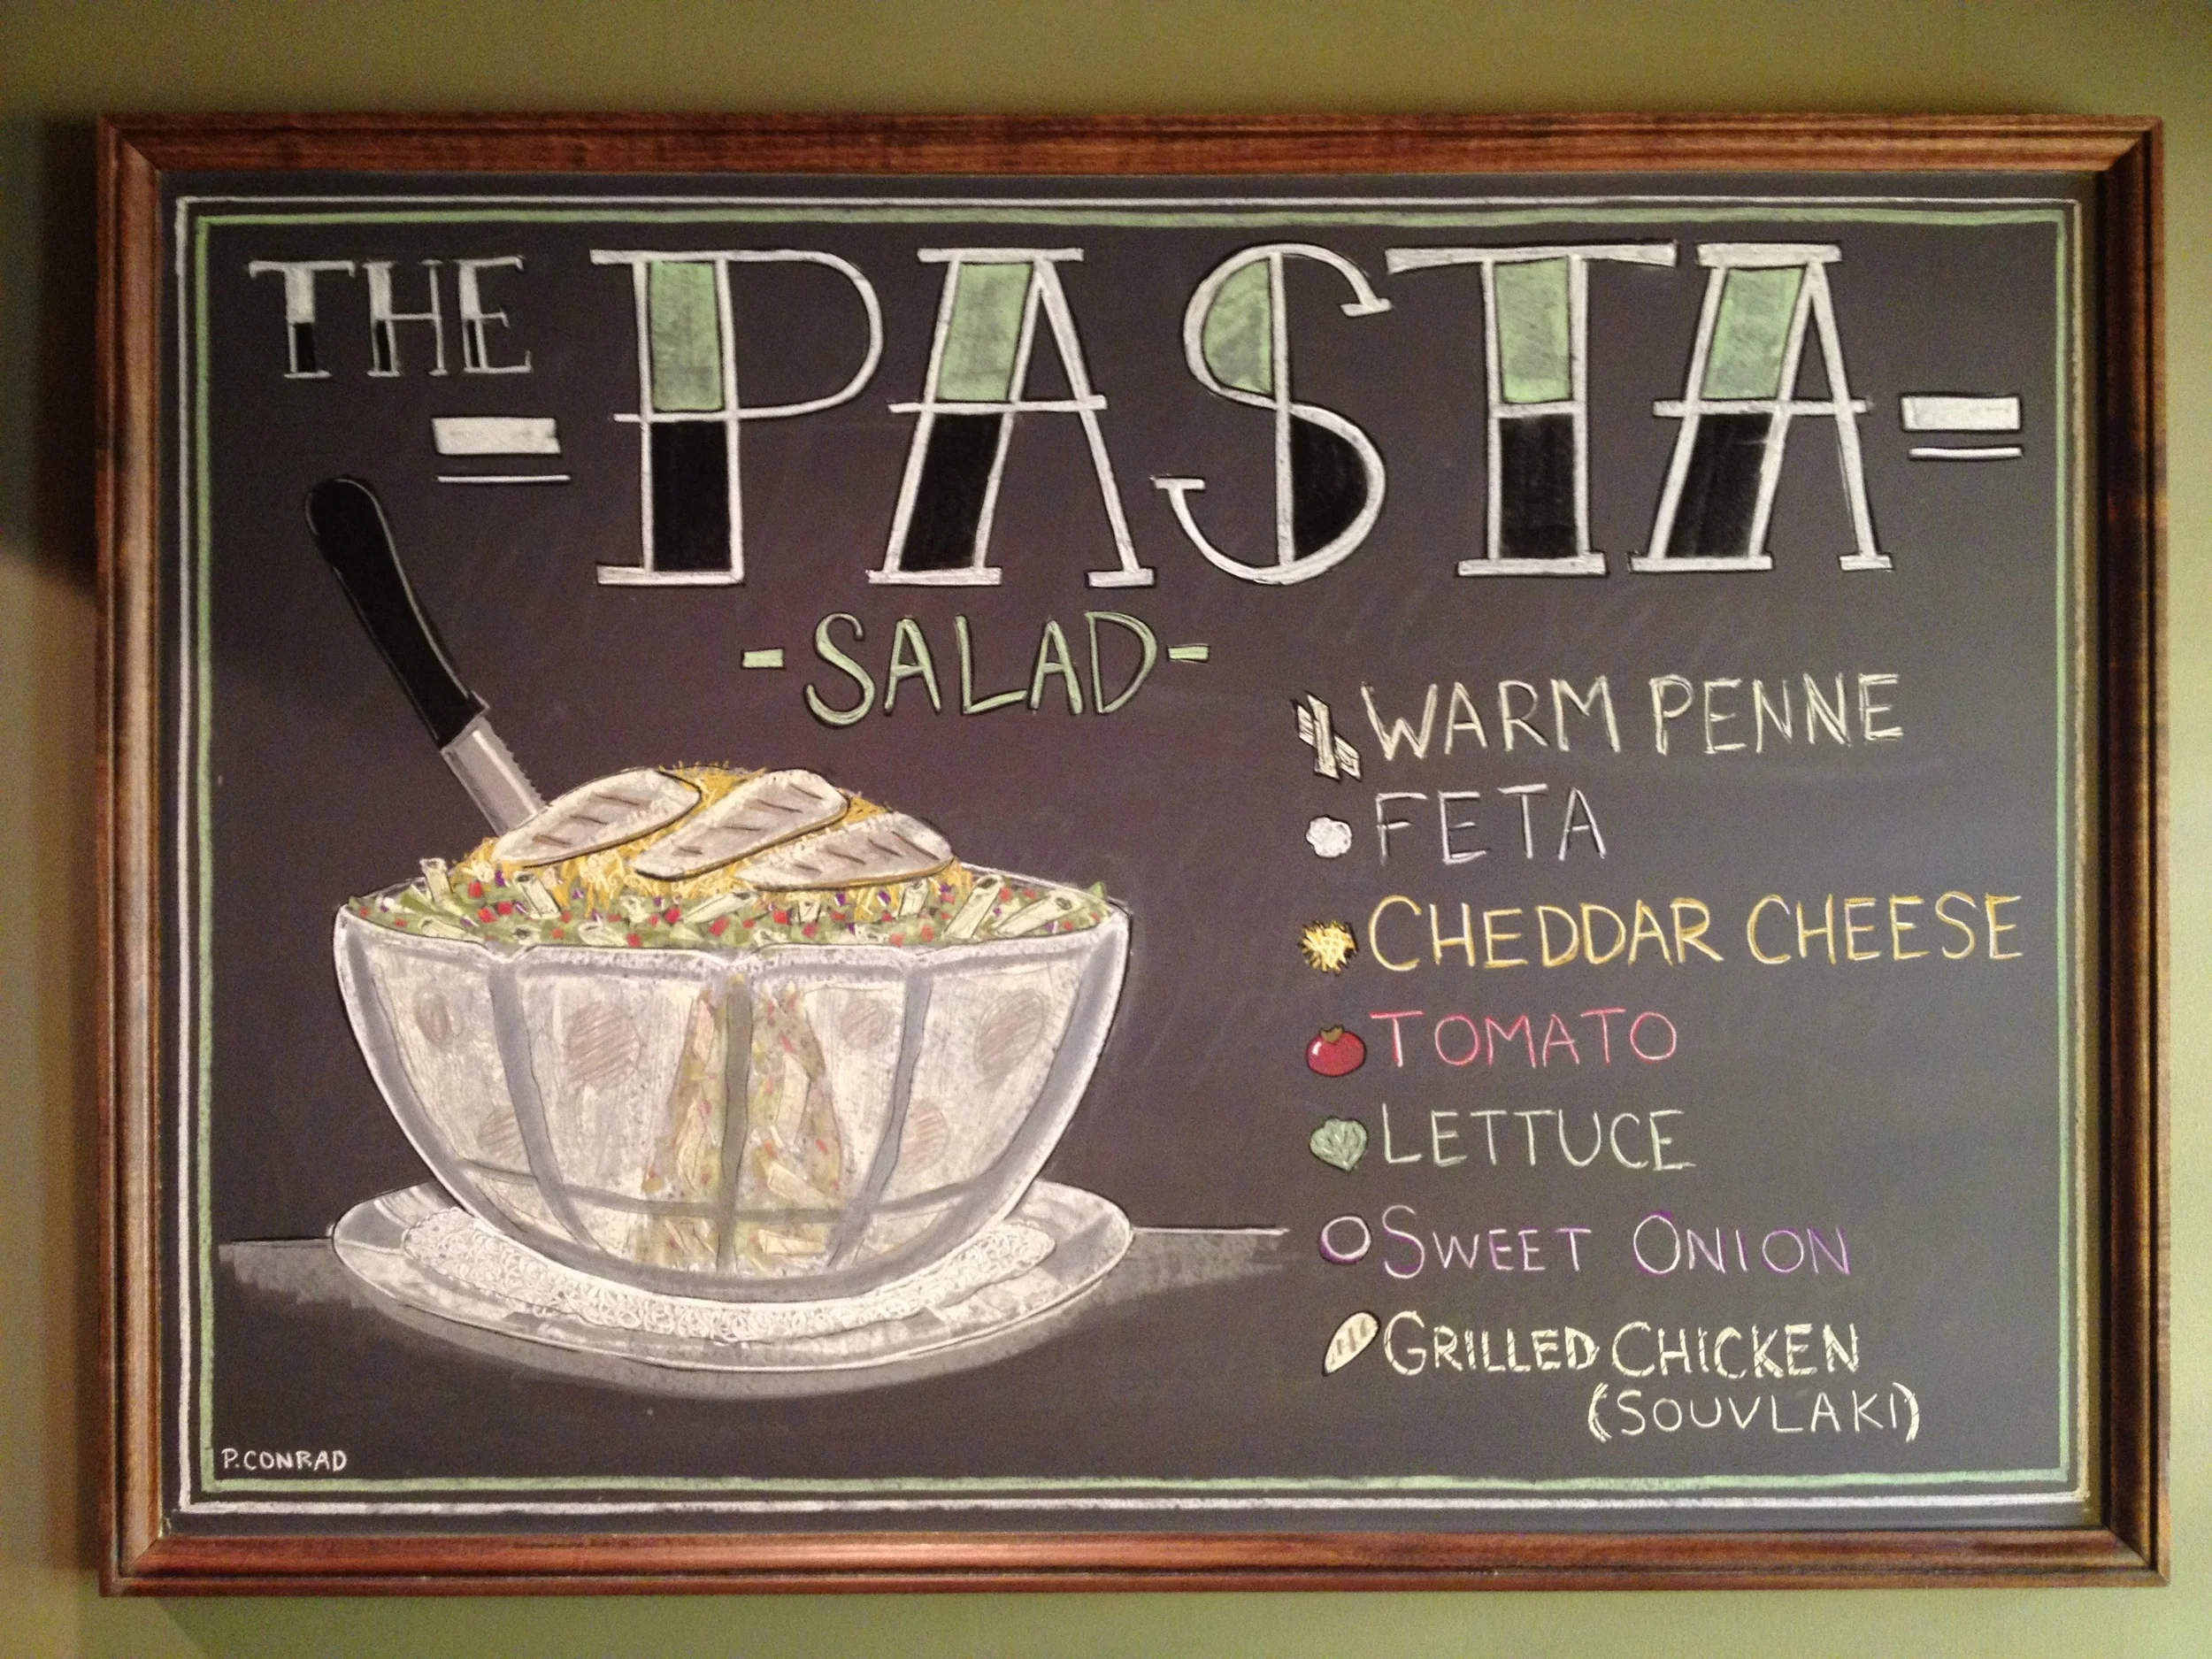 THE
PASTA
-SALAD-
WARM PENNE
FETA
CHEDDAR CHEESE
TOMATO
LETTUCE
SWEET ONION
GRILLED CHICKEN
(SOUVLAKI)
P.CONRAD